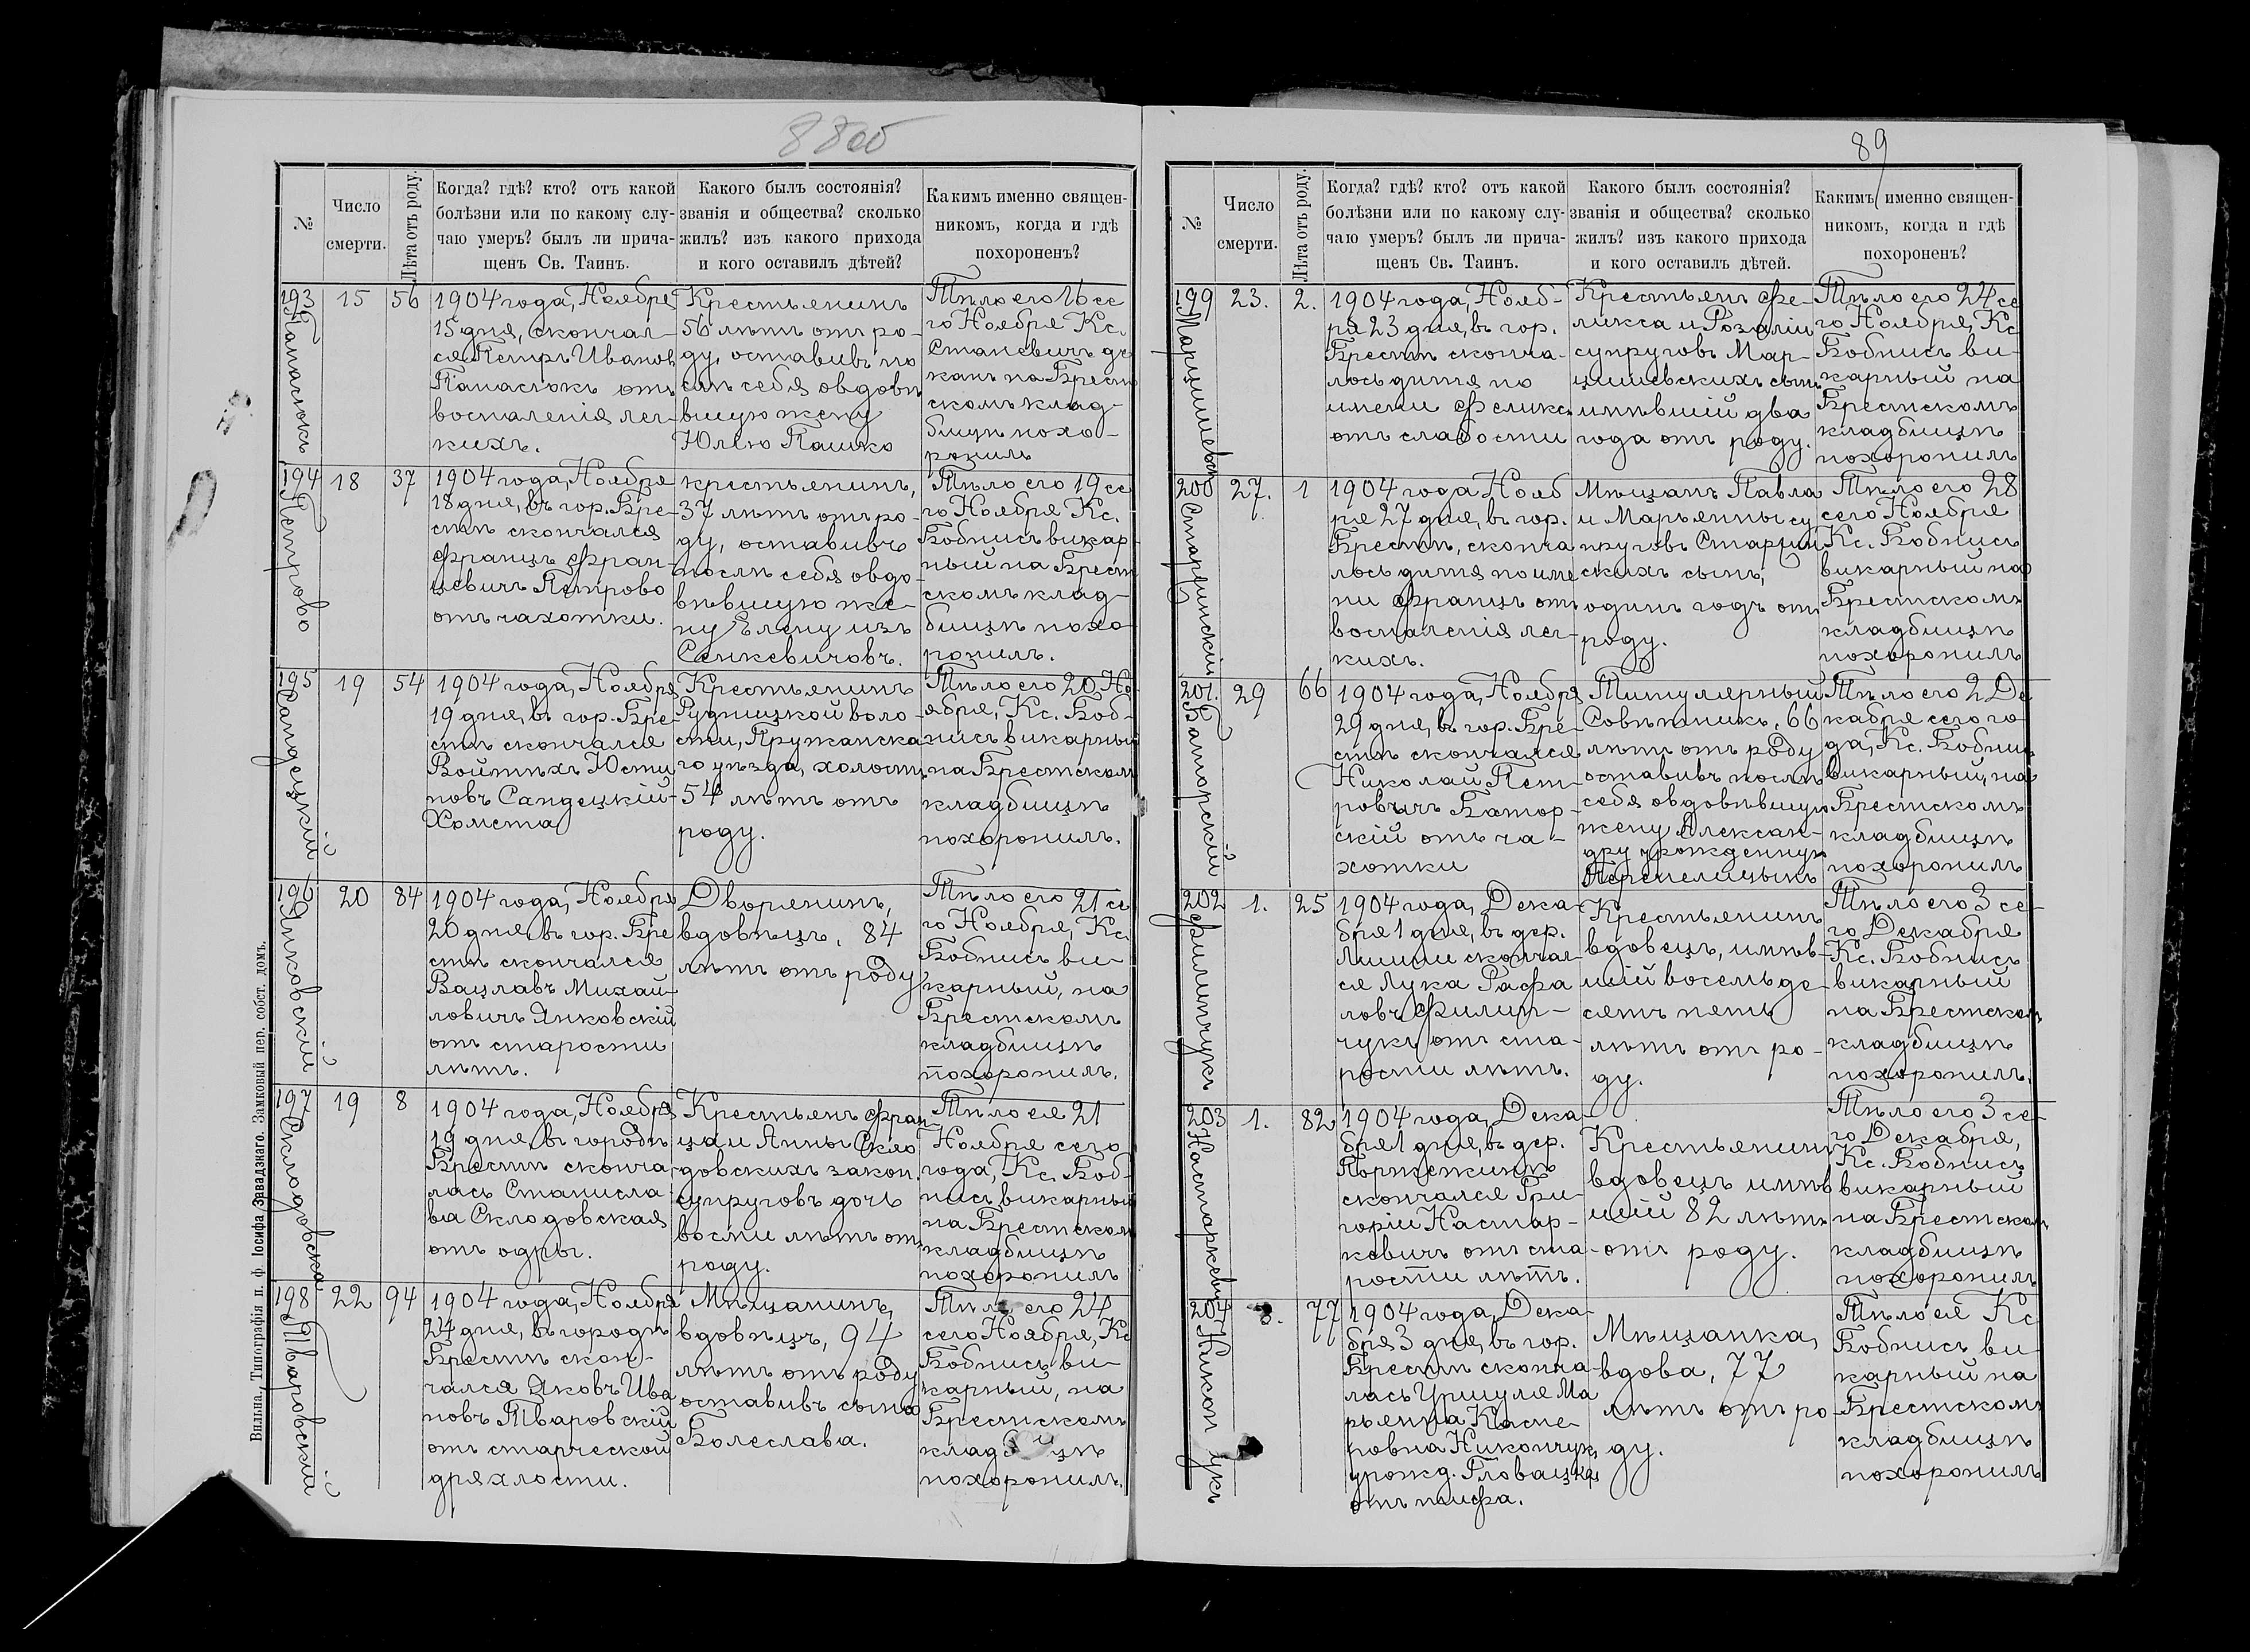 88 об
№
Число
смерти.
Лѣта отъ роду.
Когда? гдѣ? кто? отъ какой
болѣзни или по какому слу-
чаю умеръ? былъ ли прича-
щенъ Св. Таинъ.
Какого былъ состоянія?
званія и общества? сколько
жилъ? изъ какого прихода
и кого оставилъ дѣтей?
Какимъ именно священ-
никомъ, когда и гдѣ
похороненъ?
193
15
56
1904 года, Ноября
15 дня, скончал-
ся Петръ Ивановъ
отъ
воспаленія лег-
кихъ.
Крестьянинъ
56 лѣтъ отъ ро-
ду, оставивъ по
слѣ себя овдовѣ
вшую жену
Юлію Пашко
Тѣло его 16 се
го Ноября Кс.
Станевичъ де
канъ на Брест
скомъ клад-
бищѣ похо-
ронилъ
194
Петрово
18
37
1904 года, Ноября
18 дня, въ гор. Бре-
стѣ скончался
Францъ Фран-
цевичъ Петрово
отъ чахотки.
крестьянинъ,
37 лѣтъ отъ ро-
ду, оставивъ
послѣ себя овдо-
вѣвшую же-
ну Елену изъ
Сенкевичовъ.
Тѣло его 19 се
го Ноября Кс.
Бобнисъ викар-
ный на Брест
скомъ клад-
бищѣ похо-
ронилъ.
195
Сандецкій
19
54
1904 года, Ноября
19 дня, въ гор. Бре-
стѣ скончался
Войтѣхъ Юсти
новъ Сандецкій-
Хомста
Крестьянинъ
Рудницкой воло-
сти, Пружанска
го уѣзда, холостъ,
54 лѣтъ отъ
роду.
Тѣло его 20 Но
ября, Кс. Боб-
нисъ викарный
на Брестскомъ
кладбищѣ
похоронилъ.
196
Янковскій
20
84
1904 года, Ноября
20 дня въ гор. Бре
стѣ скончался
Вацлавъ Михай-
ловичъ Янковскій
отъ старости
лѣтъ.
Дворянинъ,
вдовецъ, 84
лѣтъ отъ роду
Тѣло его 21 се
го Ноября, Кс.
Бобнисъ ви-
карный, на
Брестскомъ
кладбищѣ
похоронилъ.
197
Склодовская
19
8
1904 года, Ноября
19 дня, въ городѣ
Брестѣ сконча-
лась Станисла-
ва Склодовская
отъ
Крестьянъ Фран
ца и Анны Скло
довскихъ закон.
супруговъ дочь
восми лѣтъ отъ
роду.
Тѣло ея 21
Ноября сего
года, Кс. Боб-
нисъ викарный
на Брестскомъ
кладбищѣ
похоронилъ
198
Тваровскій
22
94
1904 года, Ноября
24 дня, въ городѣ
Брестѣ скон-
чался Яковъ Ива
новъ Тваровскій
отъ старческой
дряхлости.
Мѣщанинъ,
вдовецъ, 94
лѣтъ отъ роду
оставивъ сына
Болеслава.
Тѣло его 24
сего Ноября, Кс
Бобнисъ ви-
карный, на
Брестскомъ
кладбищѣ
похоронилъ.
Вильна, Типографія п. ф. Іосифа Завадзкаго. Замковый пер. собст. домъ.
89
№
Число
смерти.
Лѣта отъ роду.
Когда? гдѣ? кто? отъ какой
болѣзни или по какому слу-
чаю умеръ? былъ ли прича-
щенъ Св. Таинъ.
Какого былъ состоянія?
званія и общества? сколько
жилъ? изъ какого прихода
и кого оставилъ дѣтей.
Какимъ именно священ-
никомъ, когда и гдѣ
похороненъ?
199
23.
2.
1904 года, Нояб-
ря 23 дня, въ гор.
Брестѣ сконча-
лось дитя по
имени Феликсъ
отъ слабости
Крестьянъ Фе-
ликса и Розаліи
супруговъ Мар-
цишевскихъ сынъ
имѣвшій два
года отъ роду.
Тѣло его 24 се
го Ноября, Кс
Бобнисъ ви-
карный на
Брестскомъ
кладбищѣ
похоронилъ
200
27.
1
1904 года Нояб
ря 27 дня, въ гор.
Брестѣ, сконча
лось дитя по име
ни Францъ отъ
воспаленія лег-
кихъ.
Мѣщанъ Павла
и Марьянны су
пруговъ
скихъ сынъ,
одинъ годъ отъ
роду.
Тѣло его 28
сего Ноября
Кс. Бобнисъ
викарный на
Брестскомъ
кладбищѣ
похоронилъ
201.
Баторскій
29
66
1904 года, Ноября
29 дня, въ гор. Бре-
стѣ скончался
Николай Пет-
ровичъ Батор-
скій отъ ча-
хотки
Титулярный
Совѣтникъ, 66
лѣтъ отъ роду
оставивъ послѣ
себя овдовѣвшую
жену Алексан-
дру урожденную
Перепелицынъ
Тѣло его 2 Де
кабря сего го
да, Кс. Бобнисъ
викарный, на
Брестскомъ
кладбищѣ
похоронилъ
202
Филипчукъ
1.
25
1904 года, Дека-
бря 1 дня, въ дер.
скончал-
ся Лука Рафа
ловъ Филип-
чукъ отъ ста-
рости лѣтъ.
Крестьянинъ
вдовецъ, имѣв-
шій восемьде-
сятъ пять
лѣтъ отъ ро-
ду.
Тѣло его 3 се-
го Декабря
Кс. Бобнисъ
викарный
на Брестскомъ
кладбищѣ
похоронилъ.
203
Настаркевичъ
1.
82
1904 года, Дека-
бря 1 дня, въ дер.
скончался Гри-
горій Настар-
кевичъ отъ ста-
рости лѣтъ.
Крестьянинъ
вдовецъ имѣв
шій 82 лѣтъ
отъ роду.
Тѣло его 3 се-
го Декабря,
Кс. Бобнисъ
викарный
на Брестскомъ
кладбищѣ
похоронилъ
204
Никончукъ
3.
77
1904 года, Дека-
бря 3 дня, въ гор.
Брестѣ сконча-
лась Уршуля Ма
рьянна Каспе-
ровна Никончукъ,
урожд. Гловацкая
отъ тифа.
Мѣщанка,
вдова, 77
лѣтъ отъ ро-
ду.
Тѣло ея Кс
Бобнисъ ви-
карный на
Брестскомъ
кладбищѣ
похоронилъ